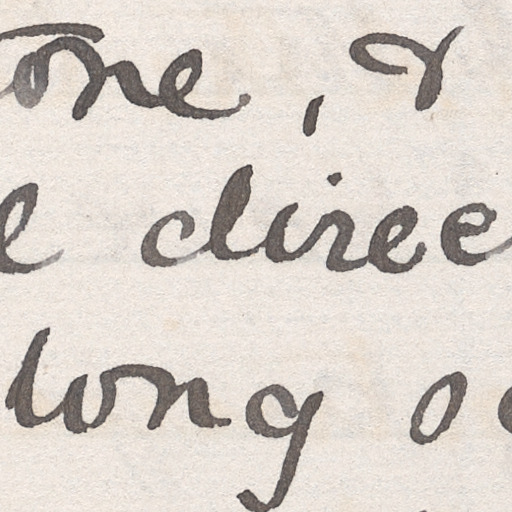 tone, &
e direc
long o